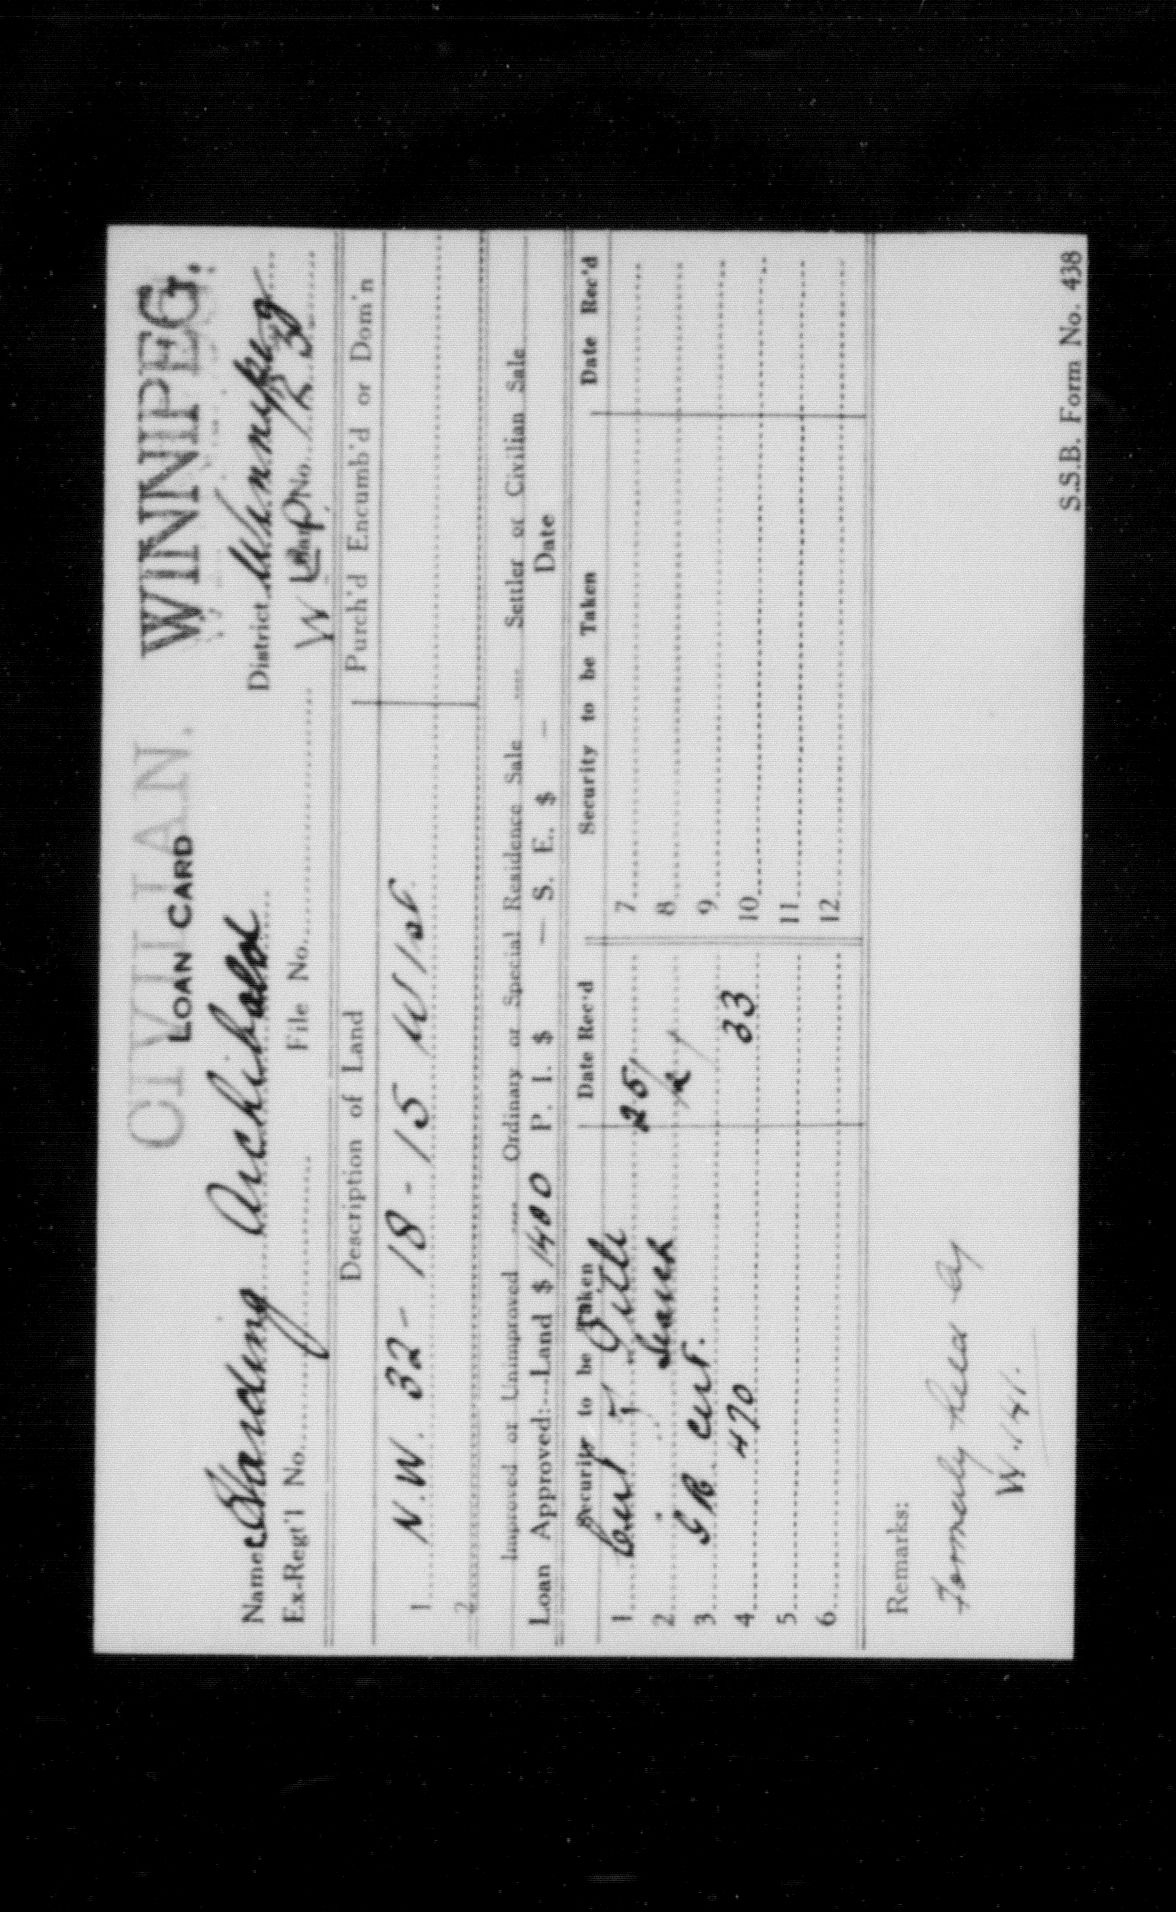 CIVILIAN. WINNIPEG.
LOAN CARD
Name Standing Archibald District Winnipeg
Ex-Regt'l No. File No. Loan No.
W
Description of Land Purch'd Encumb'd or Dom'n
1 N.W. 32-18-15 W 1st
2
Improved or Unimproved .... Ordinary or Special Residence Sale .... Settler or Civilian Sale
Loan Approved:—Land $ 1400 P. I. $ — S. E. $ — Date
Security to be Taken Date Rec'd Security to be Taken Date Rec'd
1 Cert of Title 25/ 7
2 " Search 8
3 G R Cert. 9
4 470 33 10
5 11
6 12
Remarks:
Formerly held by
W.141.
S.S.B. Form No. 438